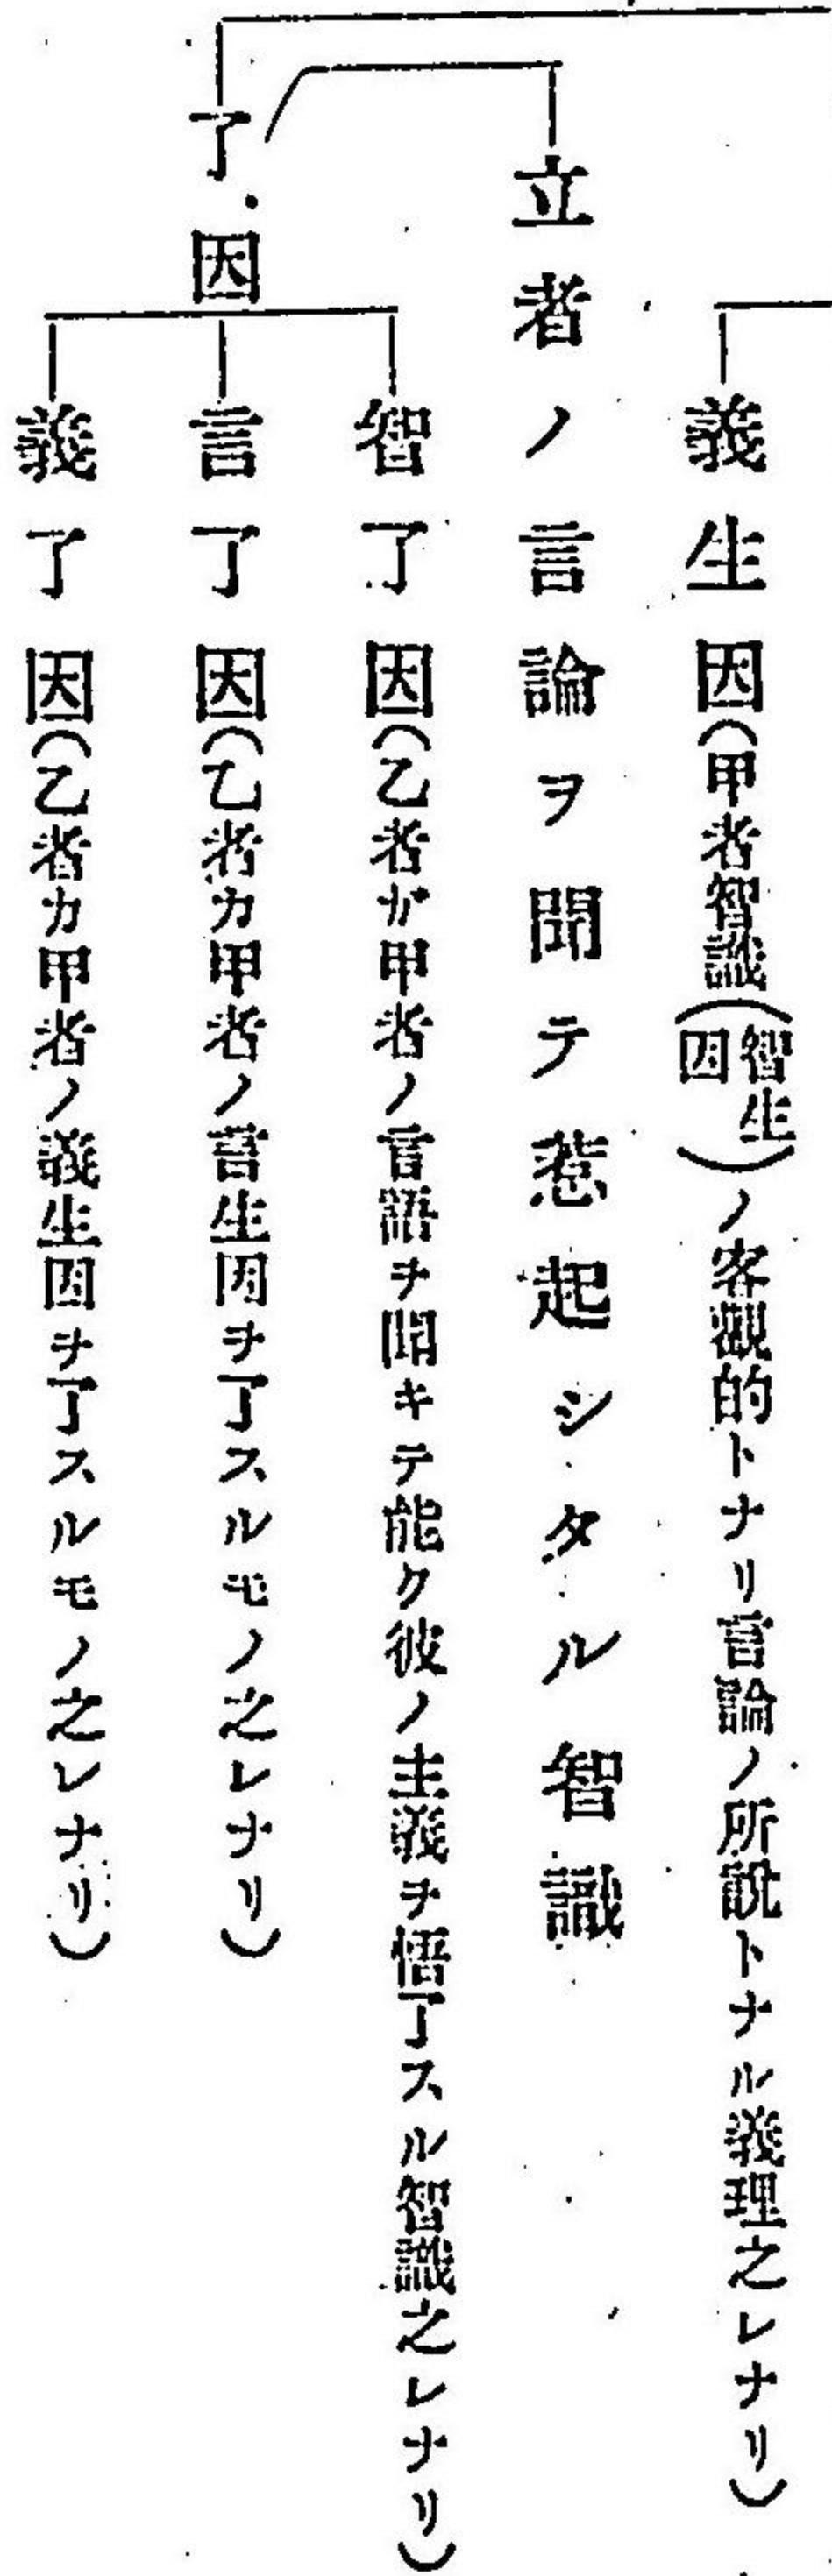 義生因(甲者智識(智生因)ノ客觀的トナリ言論ノ所說トナル義理之レナリ)
立者ノ言論ヲ聞テ惹起シタル智識
了因
智了因(乙者ガ甲者ノ言語ヲ聞キテ能ク彼ノ主義ヲ悟了スル智識之レナリ)
言了因(乙者カ甲者ノ言生因ヲ了スルモノ之レナリ)
義了因(乙者カ甲者ノ義生因ヲ了スルモノ之レナリ)